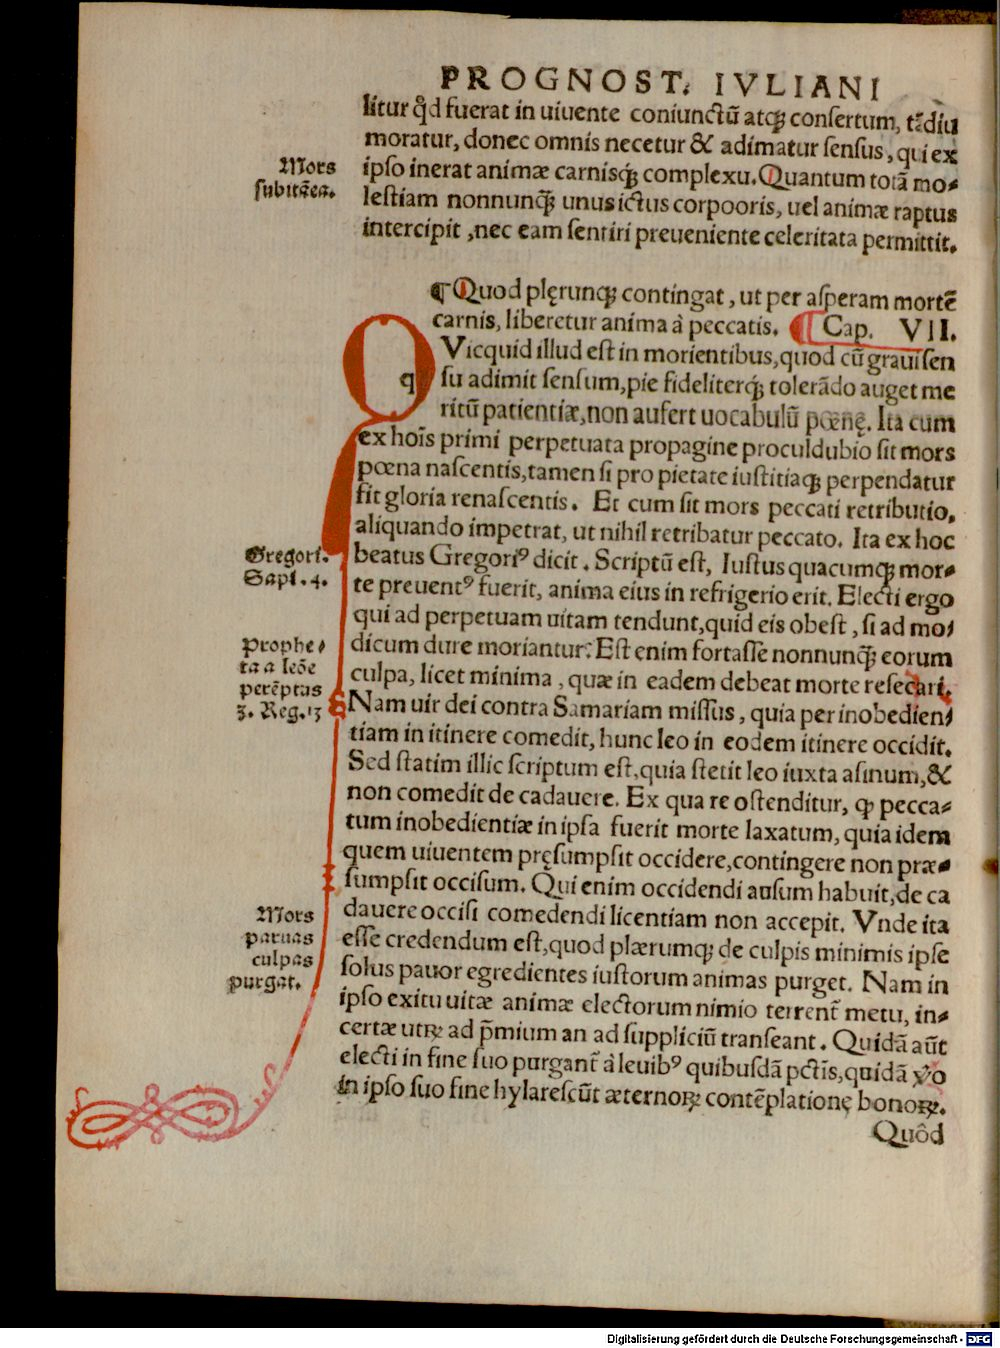 PROGNOST. IVLIANI
litur qd̓ fuerat in uiuente coniunctũ atqꝫ consertum, tãdiu
moratur, donec omnis necetur & adimatur sensus, qui ex
Mors
ipso inerat animæ carnisqꝫ complexu. Quantum totã mo-
subitãea.
lestiam nonnunqꝫ̃ unus ictus corpooris, uel animæ raptus
intercipit, nec eam sentiri preueniente celeritata permittit.
¶ Quod plęrunqꝫ contingat, ut per asperam mortẽ
carnis, liberetur anima à peccatis. ¶ Cap. VII.
QVicquid illud est in morientibus, quod cũ graui sen
q
su adimit sensum, pie fideliterqꝫ tolerãdo auget me
ritũ patientiæ, non aufert uocabulũ pœnę. Ita cum
ex hoĩs primi perpetuata propagine proculdubio sit mors
pœna nascentis, tamen si pro pietate iustitiaqꝫ perpendatur
fit gloria renascentis. Et cum sit mors peccati retributio,
aliquando impetrat, ut nihil retribatur peccato. Ita ex hoc
Gregori.
beatus Gregoriꝰ dicit. Scriptũ est, Iustus quacumqꝫ mor-
Sapi. 4.
te preuentꝰ fuerit, anima eius in refrigerio erit. Electi ergo
qui ad perpetuam uitam tendunt, quid eis obest, si ad mo/
Prophe/
dicum dure moriantur: Est enim fortasse nonnunqꝫ̃ eorum
ta a leõe
culpa, licet minima, quæ in eadem debeat morte resecari.
perẽptus
3. Reg. 13
Nam uir dei contra Samariam missus, quia per inobedien/
tiam in itinere comedit, hunc leo in eodem itinere occidit.
Sed statim illic scriptum est, quia stetit leo iuxta asinum, &
non comedit de cadauere. Ex qua re ostenditur, ꝙ pecca-
tum inobedientiæ in ipsa fuerit morte laxatum, quia idem
quem uiuentem pręsumpsit occidere, contingere non præ-
sumpsit occisum. Qui enim occidendi ausum habuit, de ca
Mors
dauere occisi comedendi licentiam non accepit. Vnde ita
paruas
esse credendum est, quod plærumqꝫ de culpis minimis ipse
culpas
solus pauor egredientes iustorum animas purget. Nam in
purgat.
ipso exitu uitæ animæ electorum nimio terrent̃ metu, in-
certæ utꝝ ad p̃mium an ad suppliciũ transeant. Quidã aũt
electi in fine suo purgant̃ à leuibꝰ quibusdã pctĩs, quidã ỿo
in ipso suo fine hylarescũt æternoꝝ contẽplationę bonoꝝ.
Quôd
Digitalisierung gefördert durch die Deutsche Forschungsgemeinschaft - DFG